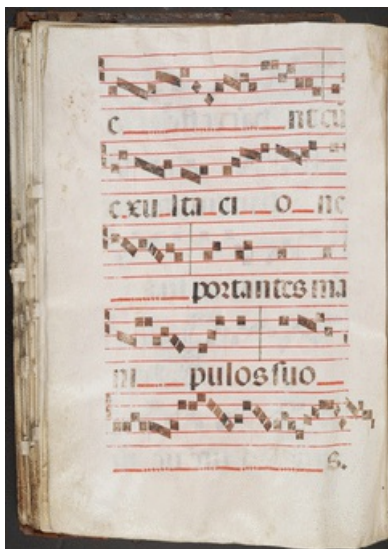 e nt cū
exu lta ci o ne
portantes ma
ni pulos suo
s.